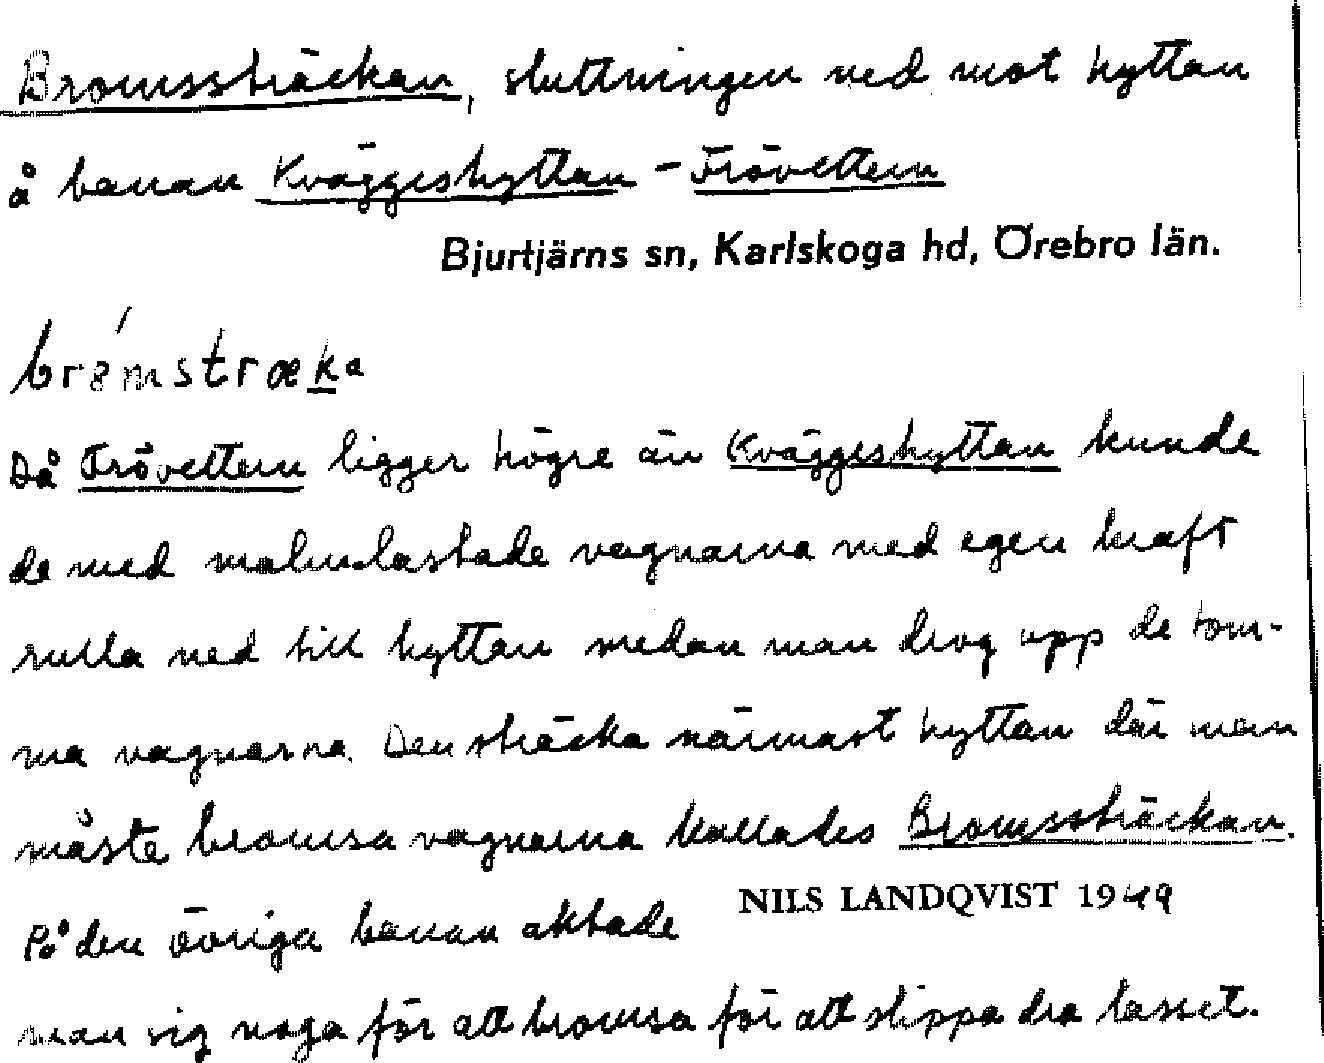 Bromssträckan, sluttningen ned mot hyttan
å banan Kväggeshyttan - Frövettern
Bjurtjärns sn, Karlskoga hd, Örebro län.
brómstræka
Då Frövettern ligger högre än Kväggeshyttan kunde
de med malmlastade vagnarna med egen kraft
rulla ned till hyttan medan man drog upp de tom-
ma vagnarna. Den sträcka närmast hyttan där man
måste bromsa vagnarna kallades Bromssträckan.
På den övriga banan aktade
NILS LANDQVIST 1949
man sig noga för att bromsa för att slippa dra lasset.